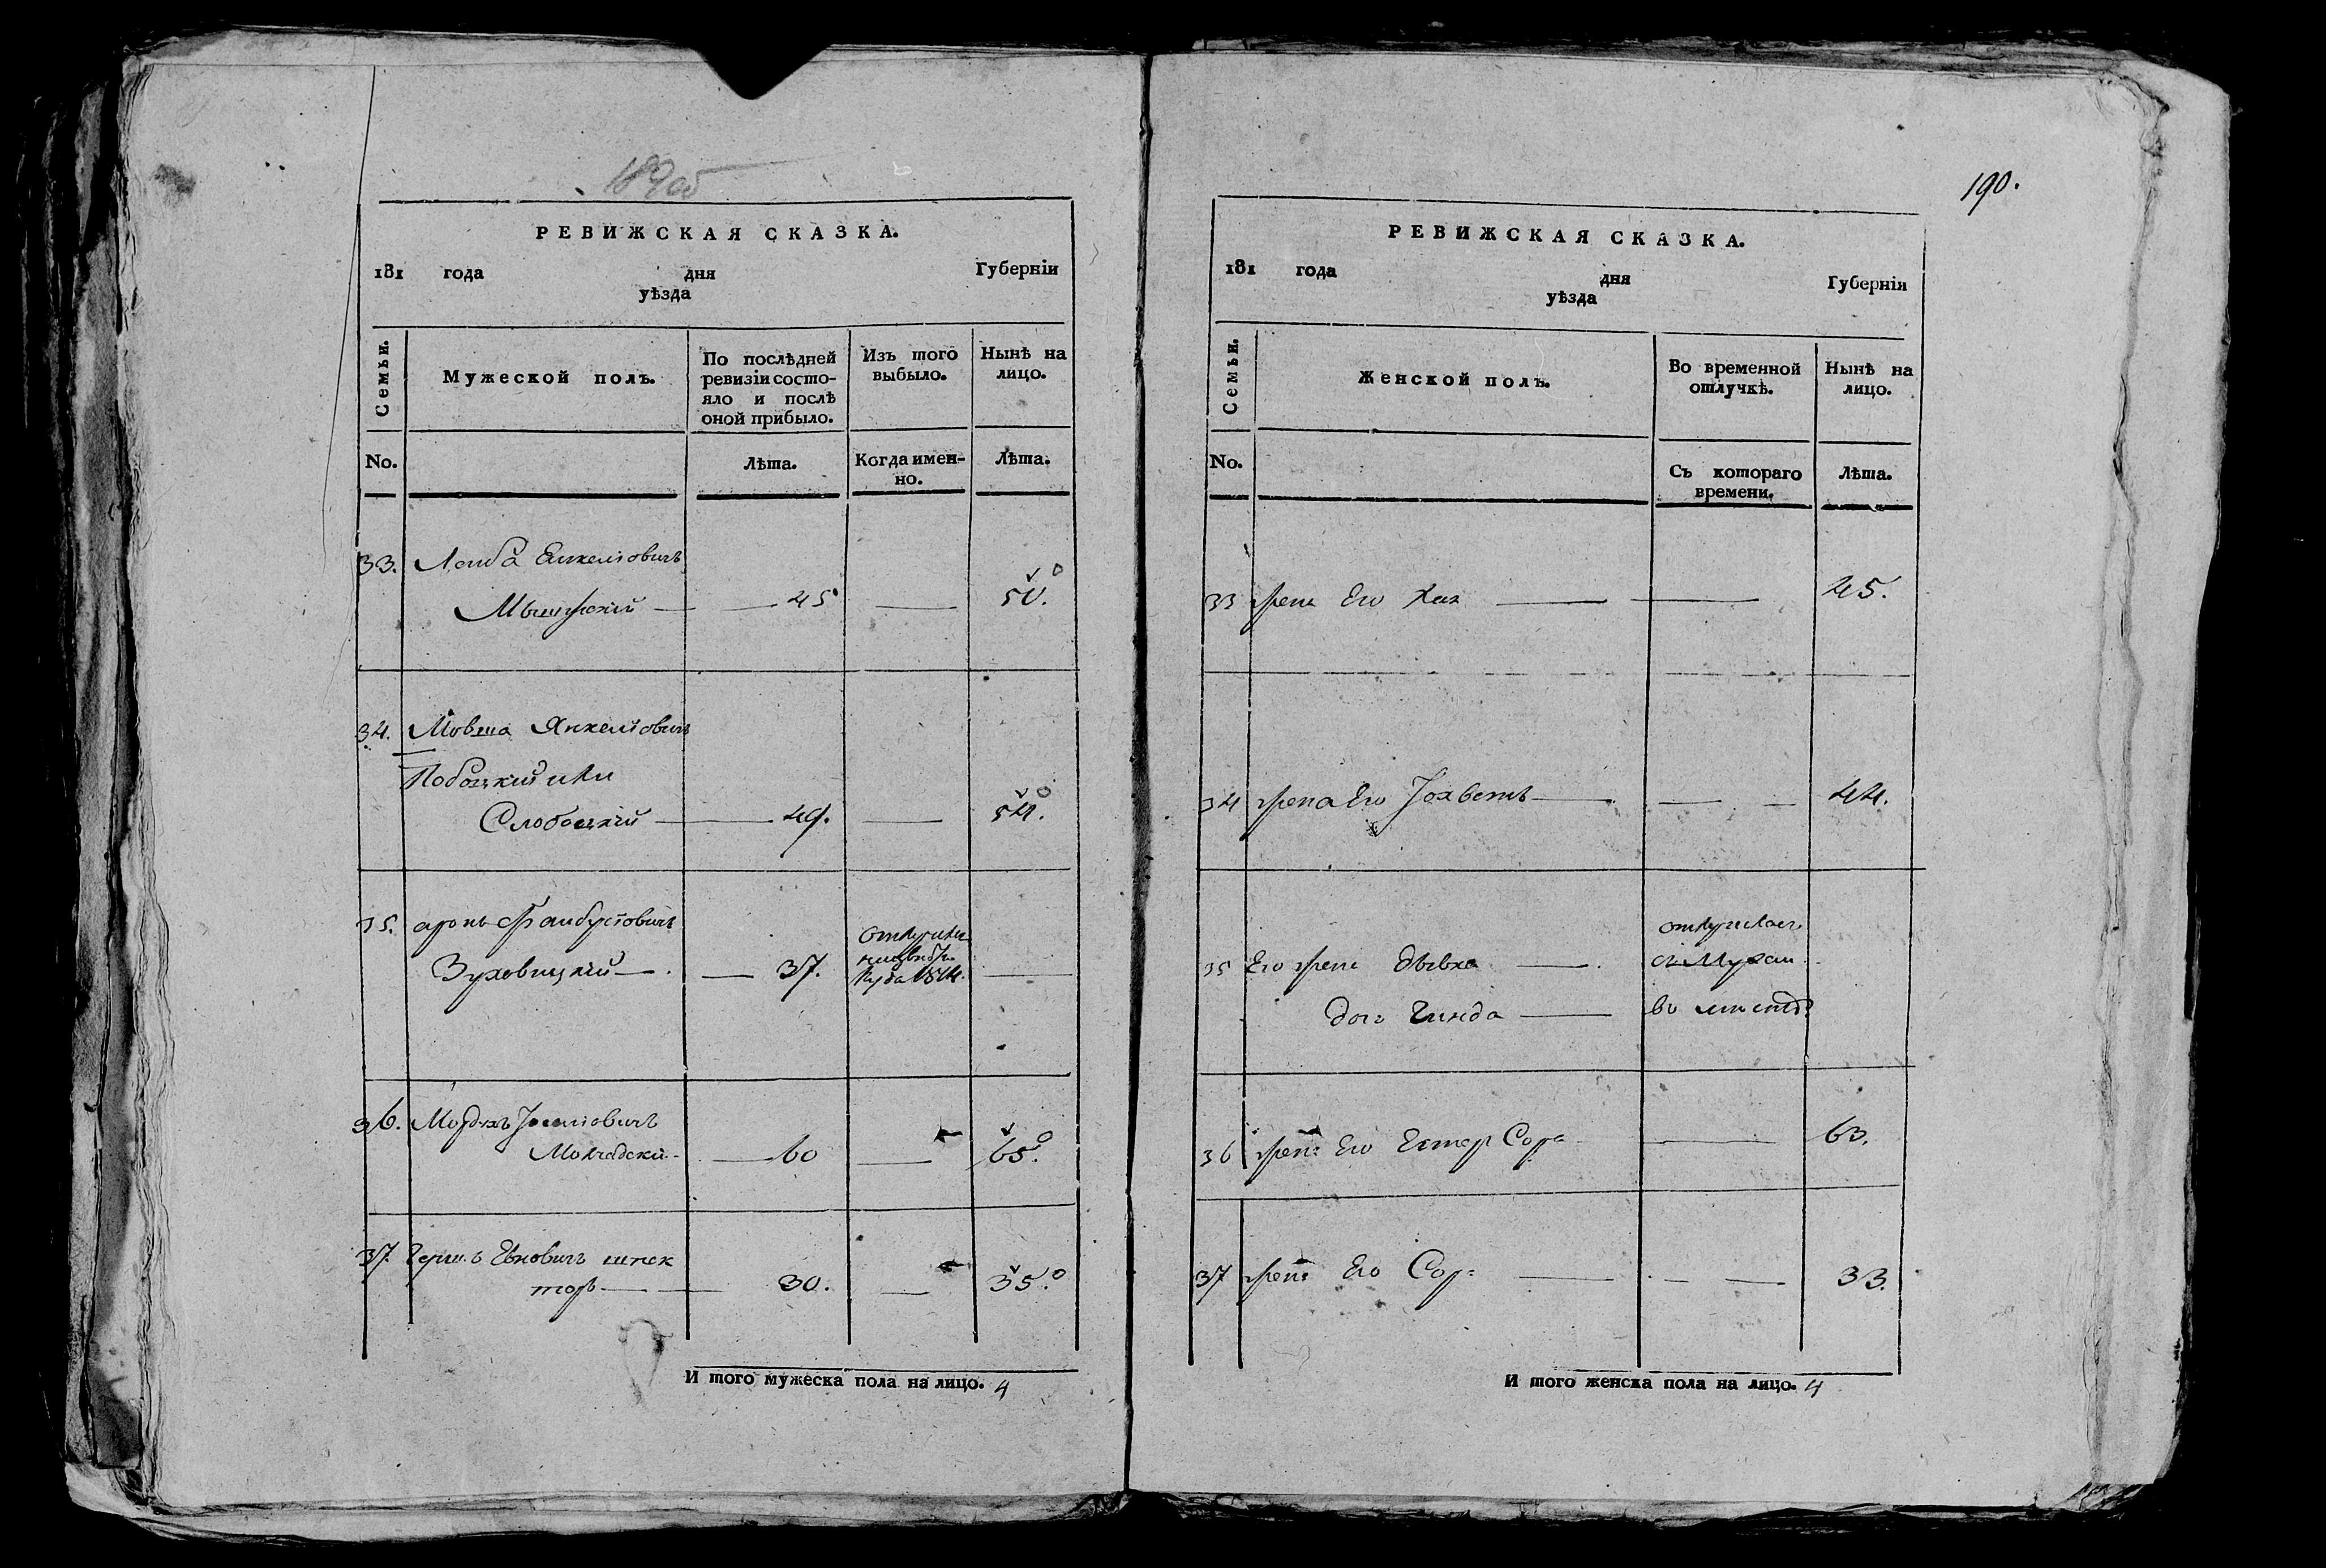 189об
РЕВИЖСКАЯ СКАЗКА.
181 года дня Губерніи
уѣзда
Семьи.
Мужеской полъ.
По послѣдней
ревизіи состо-
яло и послѣ
оной прибыло.
Изъ того
выбыло.
Нынѣ на
лицо.
No.
Лѣта.
Когда имен-
но.
Лѣта.
33. Лейба Янкеліовичъ
45 50.
34. Мовша Янкеліовичъ
или
Слобоцкій 49. 54.
35. аронъ Файбусовичъ
Зуховицкій 37.
1814.
36. Мордхъ Іоселіовичъ
Молчадскій 60 65.
37. Гершъ Евновичъ шпек
торъ 30. 35.
И того мужеска пола на лицо. 4
190.
РЕВИЖСКАЯ СКАЗКА.
181 года дня Губерніи
уѣзда
Семьи.
Женской полъ.
Во временной
отлучкѣ.
Нынѣ на
лицо.
No.
Съ котораго
времени.
Лѣта.
33 жена Его Хая 45.
34 жена Его Іохветъ 44.
35 Его жена двейра
с Мужем
доч Гинда во
36 жена Его Естер Сора 63.
37 жена Его Сора 33.
И того женска пола на лицо. 4